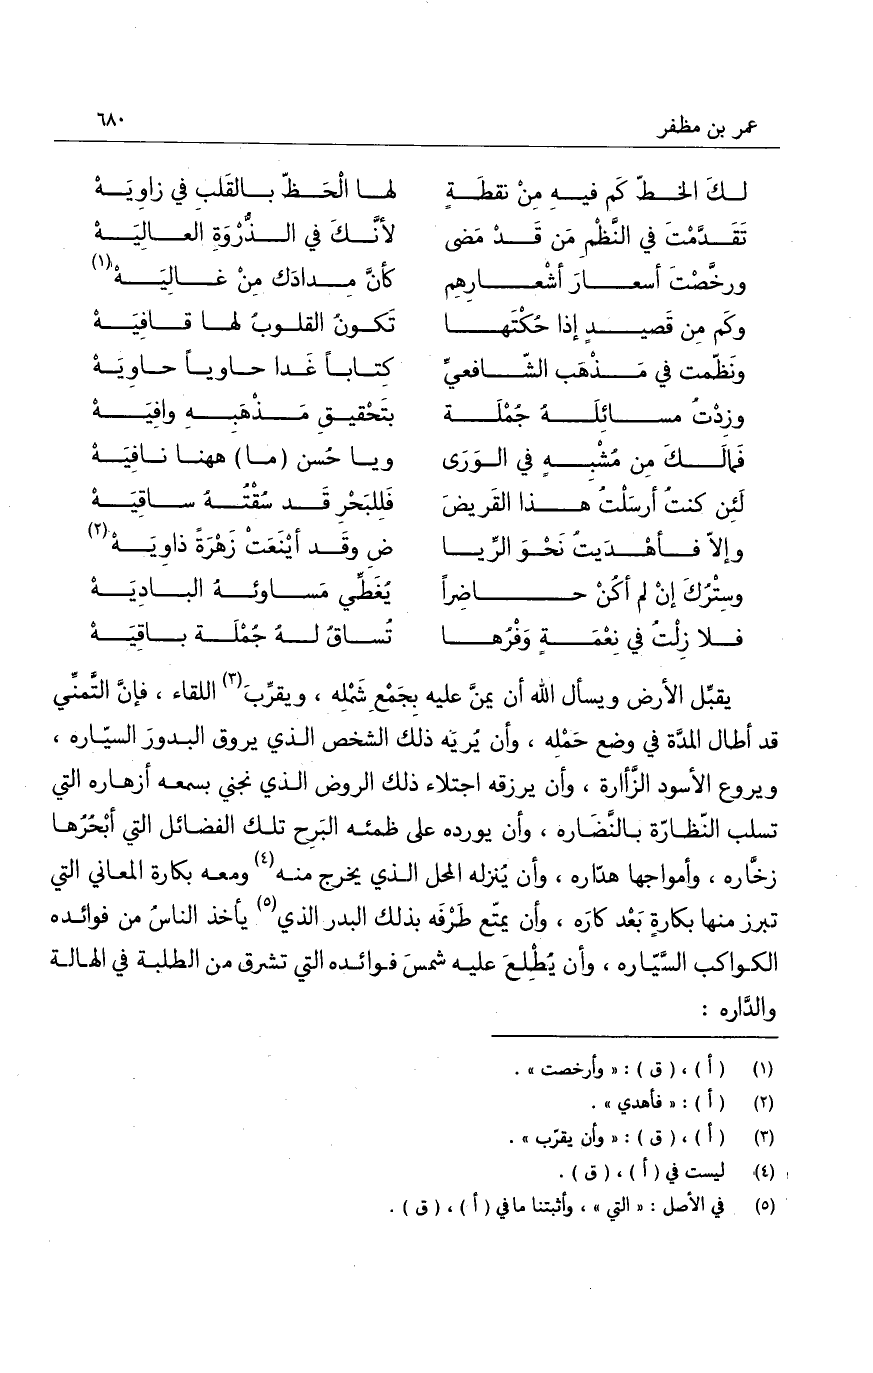 عمر بن مظفر ٦٨٠
لكَ الخطّ كَم فيه مِنْ نقطَةٍ لها الْحَظّ بالقَلبِ في زاويَهْ
تَقَدَّمْتَ في النَّظْمِ مَن قَدْ مَضى لأنَّكَ في الذُّرْوَةِ العاليَهْ
ورخَّصْتَ أسعارَ أشْعارِهِم كأنَّ مِدادَك مِنْ غاليَهْ(١)
وكَم مِن قصيدٍ إذا حُكْتَها تَكونُ القلوبُ لها قافيَهْ
ونَظّمت في مَذْهَب الشّافعيِّ كتاباً غَدا حاوياً حاويَهْ
وزِدْتُ مسائلَهُ جُمْلَة بتَحْقيقِ مَذْهَبِهِ وافيَهْ
فَمالَكَ مِن مُشْبِهٍ في الوَرَى ويا حُسن (ما) ههنا نافيَهْ
لَئِن كنتُ أرسَلْتُ هذا القَريضَ فَللبَحْرِ قَد سُقْتُهُ ساقيَهْ
وإلاّ فأهْدَيتُ نَحْوَ الرِّيا ضِ وقَد أيْنَعَتْ زَهْرَةً ذاويَهْ(٢)
وسِتْرُكَ إنْ لم أكُنْ حاضِراً يُغَطِّي مَساوئَهُ الباديَهْ
فلا زِلْتُ في نِعْمَةٍ وَفْرُها تُساقُ لهُ جُمْلَة باقيَهْ
يقبِّل الأرض ويسأل الله أن يمنَّ عليه بجَمْعِ شَمْلِه ، ويقرِّبَ(٣) اللقاء ، فإنَّ التَّمنِّي
قد أطال المدَّة في وضع حَمْلِه ، وأن يُريَه ذلك الشخص الذي يروق البدورَ السيّاره ،
ويروع الأسود الزَّأارة ، وأن يرزقه اجتلاء ذلك الروض الذي نجني بسمعه أزهاره التي
تسلب النّظارة بالنَّضَاره ، وأن يورده على ظمئه البَرح تلك الفضائل التي أبْحُرُها
زخَّاره ، وأمواجها هدّاره ، وأن يُنزله المحل الذي يخرج منه(٤) ومعه بكارة المعاني التي
تبرز منها بكارةٍ بَعْد كارَه ، وأن يمتّع طَرْفَه بذلك البدر الذي(٥) يأخذ الناسُ من فوائده
الكواكب السَّيّاره ، وأن يُطْلِعَ عليه شمسَ فوائده التي تشرق من الطلبة في الهالة
والدَّاره :
(١) ( أ ) ، ( ق ) : « وأرخصت » .
(٢) ( أ ) : « فأهدي » .
(٣) ( أ ) ، ( ق ) : « وأن يقرّب » .
(٤) ليست في ( أ ) ، ( ق ) .
(٥) في الأصل : « التي » ، وأثبتنا ما في ( أ ) ، ( ق ) .